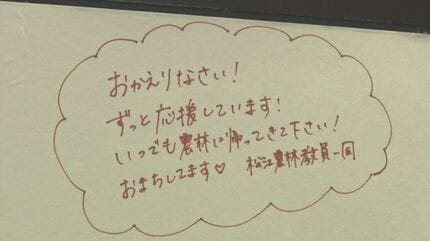 おかえりなさい!
ずっと応援しています!
いつでも農林に帰ってきて下さい!
おまちしてます♡ 松江農林教員一同